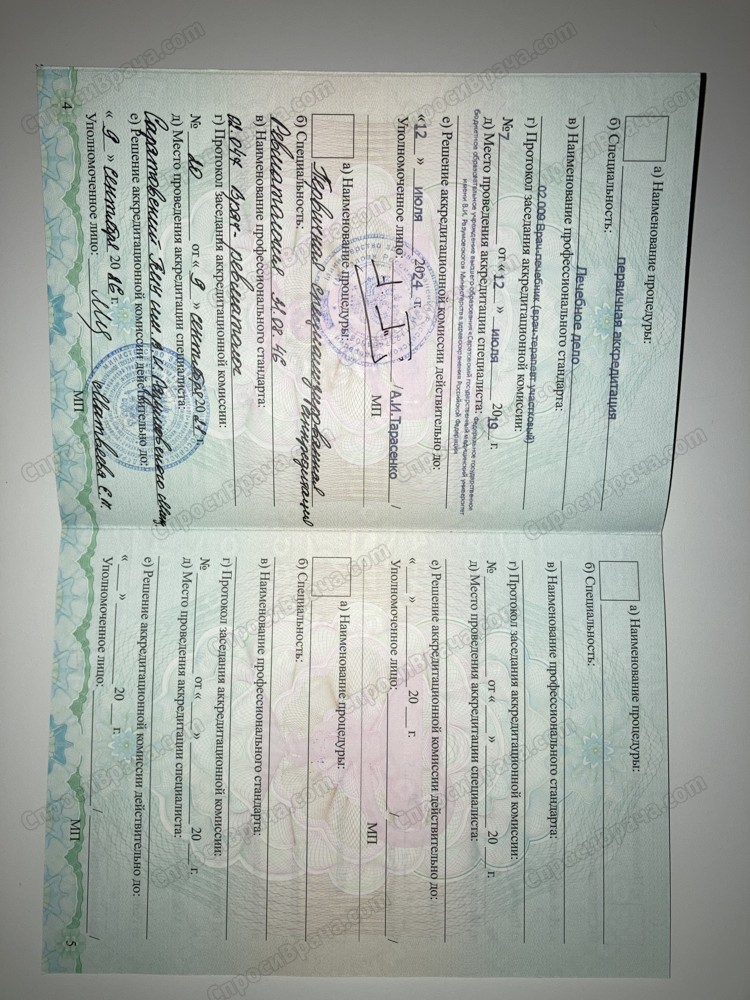 а) Наименование процедуры:
первичная аккредитация
б) Специальность:
Лечебное дело
в) Наименование профессионального стандарта:
02.009 Врач-лечебник (врач-терапевт участковый)
г) Протокол заседания аккредитационной комиссии:
№7 от «12» июля 2019 г.
д) Место проведения аккредитации специалиста: Федеральное государственное
бюджетное образовательное учреждение высшего образования «Саратовский государственный медицинский университет
имени В.И. Разумовского» Министерства здравоохранения Российской Федерации
е) Решение аккредитационной комиссии действительно до:
«12» июля 2024 г.
Уполномоченное лицо: /А.И.Тарасенко/
МП
а) Наименование процедуры:
Первичная специализированная аккредитация
б) Специальность:
Ревматология 31.08.46
в) Наименование профессионального стандарта:
врач-ревматолог
г) Протокол заседания аккредитационной комиссии:
№ 10 от «9» сентября 2021 г.
д) Место проведения аккредитации специалиста:
Саратовский ГМУ им В.И. Разумовского
е) Решение аккредитационной комиссии действительно до:
«9» сентября 2026 г.
Уполномоченное лицо: Матвеева Е.П.
МП
4
а) Наименование процедуры:
б) Специальность:
в) Наименование профессионального стандарта:
г) Протокол заседания аккредитационной комиссии:
№ от « » 20 г.
д) Место проведения аккредитации специалиста:
е) Решение аккредитационной комиссии действительно до:
« » 20 г.
Уполномоченное лицо: /
МП
а) Наименование процедуры:
б) Специальность:
в) Наименование профессионального стандарта:
г) Протокол заседания аккредитационной комиссии:
№ от « » 20 г.
д) Место проведения аккредитации специалиста:
е) Решение аккредитационной комиссии действительно до:
« » 20 г.
Уполномоченное лицо: / /
МП
5
СпросиВрача.com